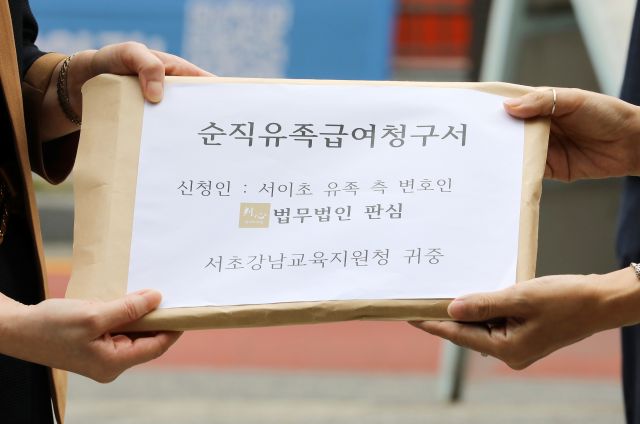 순직유족급여청구서
신청인 : 서이초 유족 측 변호인
법무법인 판심
서초강남교육지원청 귀중